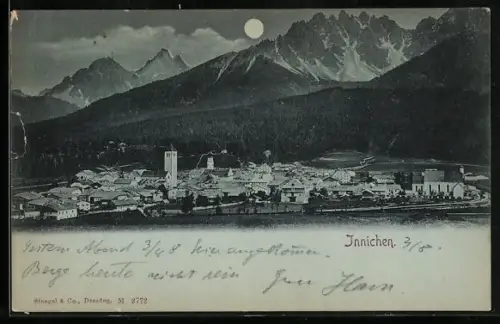 Innichen. 3/8.
Gestern Abend 3/8 8 hier angekommen.
Berge heute nicht rein
Stengel & Co., Dresden. M 2772